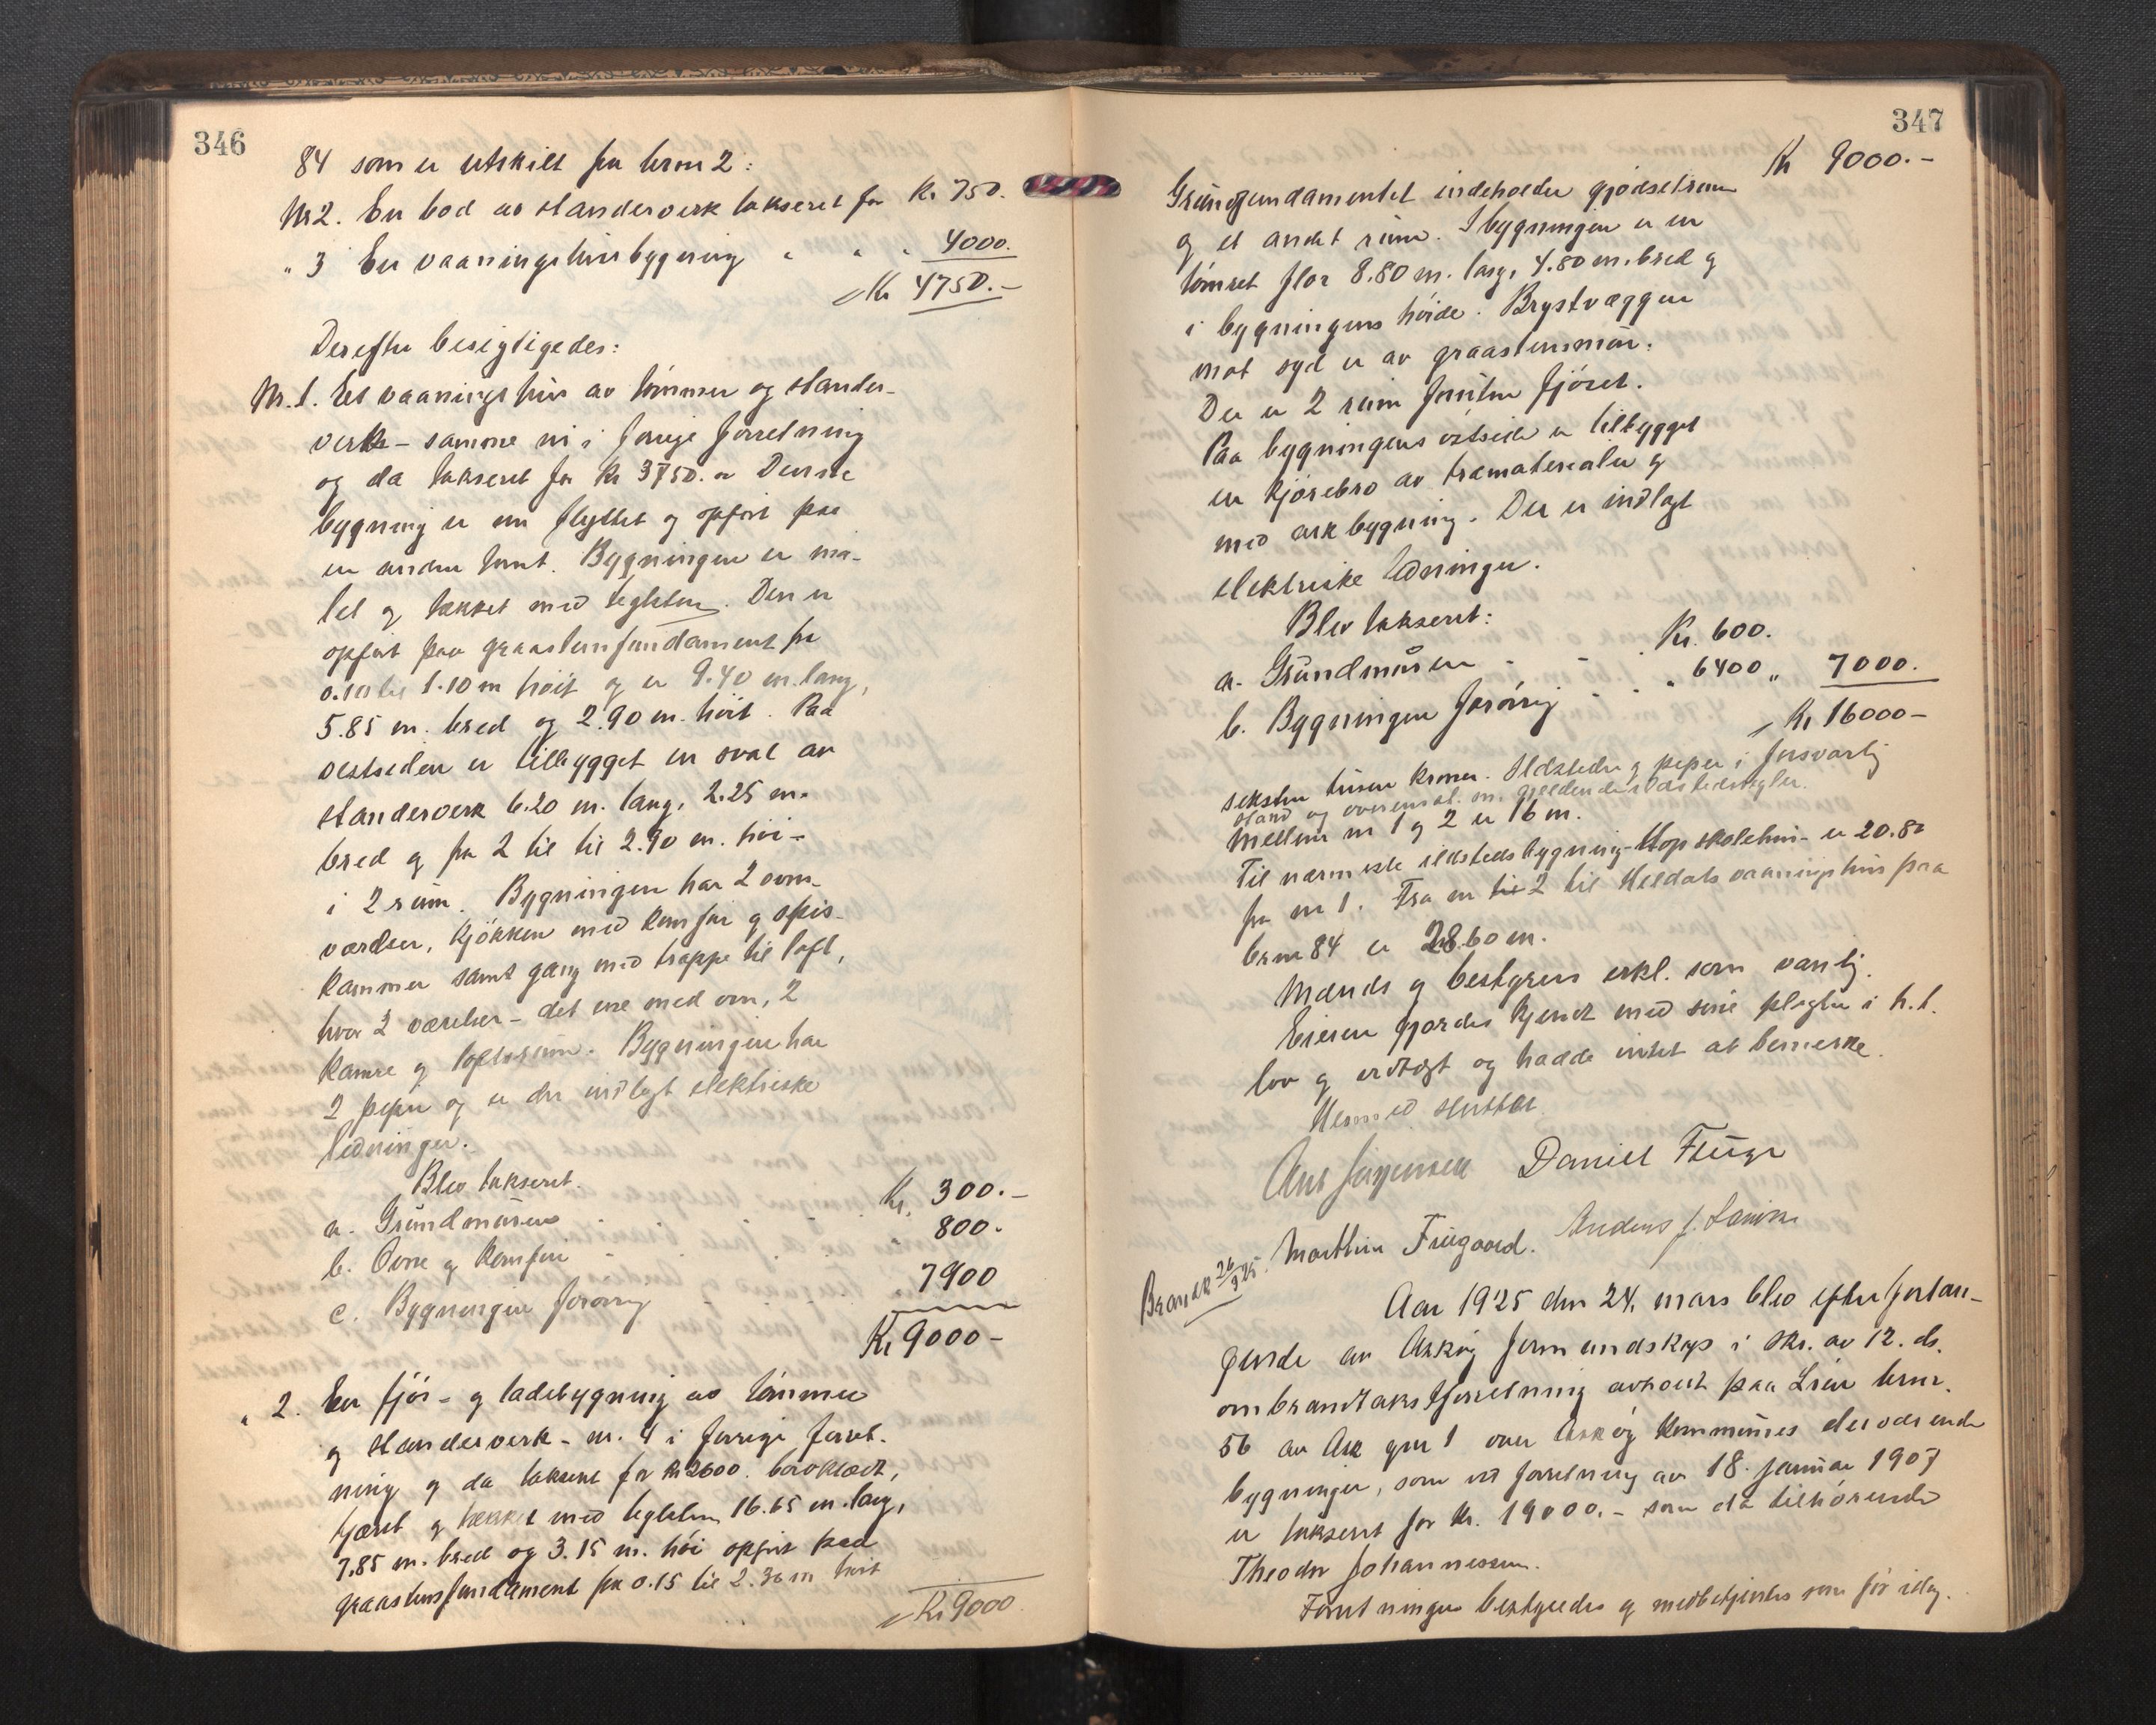 346
84 som er utskilt fra brnr 2:
Nr 2. En bod av standerverk takseret for Kr 750.
" 3 En vaaningshusbygning " " " 4000.
Kr 4750.-
Derefter besigtigedes:
Nr. 1. Et vaaningshus av tømmer og stander-
verk - samme nr i forrige forretning
og da takseret for Kr 3750. Denne
bygning er nu flyttet og opført paa
en anden tomt. Bygningen er ma-
let og tækket med teglsten. Den er
opført paa graastensfundament fra
0.10 til 1.10 m høit og er 9.40 m. lang,
5.85 m. bred og 2.90 m. høit. Paa
vestsiden er tilbygget en sval av
standerverk 6.20 m. lang, 2.25 m.
bred og fra 2 til til 2.90 m. høi -
i 2 rum. Bygningen har 2 ovns-
værelser, kjøkken med komfur og spis-
kammer samt gang med trappe til loft,
hvor 2 værelser - det ene med ovn, 2
kamre og loftsrum. Bygningen har
2 piper og er der indlagt elektriske
ledninger.
Blev takseret.
a. Grundmuren - - - Kr. 300.-
b. Ovne og komfur - - - " 800.
c. Bygningen forøvrig - - 7900
Kr 9000-
" 2. En fjøs- og ladebygning av tømmer
og standerverk - nr. 4 i forrige forret-
ning og da takseret for Kr 2600. bordklædt,
tjæret og tækket med teglsten 16.65 m. lang,
7.85 m. bred og 3.15 m. høi opført paa
graastensfundament fra 0.15 til 2.30 m høit
Kr 9000.
347
Kr 9000.-
Grundfundamentet indeholder gjødselrum
og et andet rum. I bygningen er en
tømret flor 8.80 m. lang, 4.80 m. bred og
i bygningens høide. Brystvæggen
mot syd er av graastensmur.
Der er 2 rum foruten fjøset.
Paa bygningens østside er tilbygget
en kjørebro av træmaterialer og
med arkbygning. Der er indlagt
elektriske ledninger.
Blev takseret:
a. Grundmuren - - Kr. 600.
b. Bygningen forøvrig - - " 6400 " 7000.
Kr 16000-
seksten tusen kroner. Ildsteder og piper i forsvarlig
stand og overensst. m. gjeldende ildstedsregler.
Mellem nr 1 og 2 er 16 m.
Til nærmeste ildstedsbygning - Hop skolehus - er 20.80
fra nr 1. Fra nr 2 til Heldals vaaningshus paa
brnr 84 er 28.60 m.
Mænds og bestyrers erkl. som vanlig.
Eieren gjordes kjendt med sine plagter i h.t.
lov og vedtægt og hadde intet at bemerke.
Hermed sluttet.
Daniel Fluge
Marthin Friisgaard. Anders J.
26/3 25.
Aar 1925 den 24. mars blev efter forlan-
gende av Askøy formandskap i skr. av 12. ds.
ombrandtakstforretning avholdt paa Lien brnr.
56 av Ask gnr 1 over Askøy kommunes derværende
bygninger, som ved forretning av 18. januar 1907
er takseret for Kr. 19000.- som da tilhørende
Theodor Johannessen.
Forretningen bestyredes og medbetjentes som før idag.